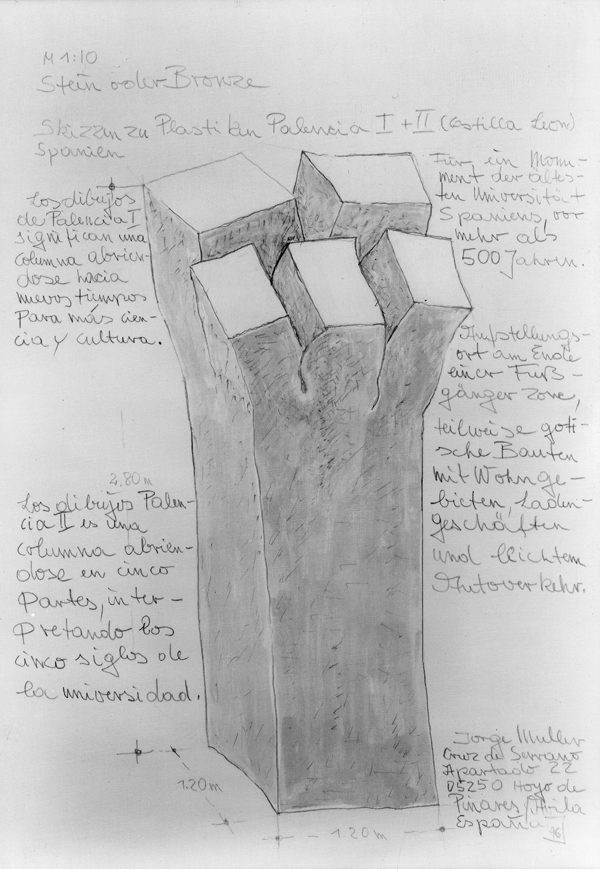 M 1:10
Stein oder Bronze
Skizzen zu Plastiken Palencia I + II (Castilla Leon)
Spanien
Los dibujos
de Palencia I
significan una
columna abrien-
dose hacia
nuevos tiempos
Para más cien-
cia y cultura.
Für ein Monu-
ment der ältes-
ten Universität
Spaniens, vor
mehr als
500 Jahren.
Aufstellungs-
ort am Ende
einer Fuß-
gänger zone,
teilweise goti-
sche Bauten
mit Wohnge-
bieten, Laden-
geschäften
und leichtem
Autoverkehr.
2,80m
Los dibujos Palen-
cia II es una
columna abrien-
dose en cinco
Partes, inter-
pretando los
cinco siglos de
la universidad.
1.20m
1.20m
Jorge Muller
Cruz de Serrano
Apartado 22
05250 Hoyo de
Pinares/Avila
España
96